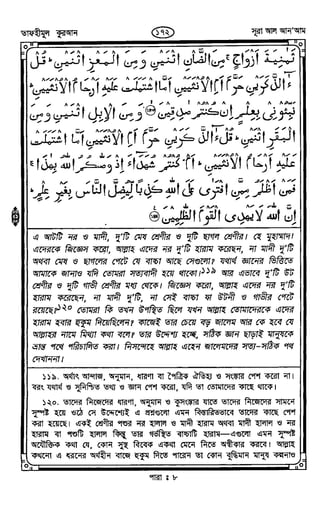 তাফহীমুল কুরআন
১৭২
সূরা আল আন'আম
ثَمٰنِيَةَ اَزْوَاجٍ ۚ مِنَ الضَّاْنِ اثْنَيْنِ وَمِنَ الْمَعْزِ اثْنَيْنِ ؕ قُلْ
ءٰۤالذَّكَرَيْنِ حَرَّمَ اَمِ الْاُنْثَيَيْنِ اَمَّا اشْتَمَلَتْ عَلَيْهِ اَرْحَامُ الْاُنْثَيَيْنِ ؕ
نَبِّـُٔوْنِيْ بِعِلْمٍ اِنْ كُنْتُمْ صٰدِقِيْنَ ۙ وَمِنَ الْاِبِلِ اثْنَيْنِ وَمِنَ
الْبَقَرِ اثْنَيْنِ ؕ قُلْ ءٰۤالذَّكَرَيْنِ حَرَّمَ اَمِ الْاُنْثَيَيْنِ اَمَّا اشْتَمَلَتْ
عَلَيْهِ اَرْحَامُ الْاُنْثَيَيْنِ ؕ اَمْ كُنْتُمْ شُهَدَآءَ اِذْ وَصّٰىكُمُ اللّٰهُ بِهٰذَا ۚ
فَمَنْ اَظْلَمُ مِمَّنِ افْتَرٰى عَلَى اللّٰهِ كَذِبًا لِّيُضِلَّ النَّاسَ بِغَيْرِ عِلْمٍ ؕ
اِنَّ اللّٰهَ لَا يَهْدِى الْقَوْمَ الظّٰلِمِيْنَ
এ আটটি নর ও মাদী, দু'টি মেষ শ্রেণীর ও দুটি ছাগল শ্রেণীর। হে মুহাম্মাদ!
এদেরকে জিজ্ঞেস করো, আল্লাহ এদের নর দু'টি হারাম করেছেন, না মাদী দু'টি
অথবা মেষ ও ছাগলের পেটে যে বাচ্চা আছে সেগুলো? যথার্থ জ্ঞানের ভিত্তিতে
আমাকে জানাও যদি তোমরা সত্যবাদী হয়ে থাকো।১১৯ আর এভাবে দু'টি উট
শ্রেণীর ও দুটি গাভী শ্রেণীর মধ্য থেকে। জিজ্ঞেস করো, আল্লাহ এদের নর দু'টি
হারাম করেছেন, না মাদী দু'টি, না সেই বাচ্চা যা উটনী ও গাভীর পেটে
রয়েছে?১২০ তোমরা কি তখন উপস্থিত ছিলে যখন আল্লাহ তোমাদেরকে এদের
হারাম হবার হুকুম দিয়েছিলেন? কাজেই তার চেয়ে বড় জালেম আর কে হবে যে
আল্লাহর নামে মিথ্যা কথা বলে? তার উদ্দেশ্য হচ্ছে, সঠিক জ্ঞান ছাড়াই মানুষকে
ভ্রান্ত পথে পরিচালিত করা। নিসন্দেহে আল্লাহ এহেন জালেমদের সত্য-সঠিক পথ
দেখাননা।
১১৯. অর্থাৎ আন্দাজ, অনুমান, ধারণা বা পৈত্রিক ঐতিহ্য ও সংস্কার পেশ করো না।
বরং যথার্থ ও সুনিশ্চিত তথ্য ও জ্ঞান পেশ করো, যদি তা তোমাদের কাছে থাকে।
১২০. তাদের নিজেদের ধারণা, অনুমান ও কুসংস্কার যাতে তাদের নিজেদের সামনে
সুস্পষ্ট হয়ে ওঠে সে উদ্দেশ্যেই এ প্রশ্নগুলো এমন বিস্তারিতভাবে তাদের কাছে পেশ
করা হয়েছে। একই শ্রেণীর পশুর নর হালাল ও মাদী হারাম অথবা মাদী হালাল ও নর
হারাম বা পশুটি হালাল কিন্তু তার গর্ভস্থিত বাচ্চাটি হারাম—এগুলো এমন সুস্পষ্ট
অযৌক্তিক কথা যে, কোন সুস্থ বিবেক একথা মেনে নিতে অস্বীকার করবে। আল্লাহ
কখনো এ ধরনের অর্থহীন বাজে হুকুম দিতে পারেন তা কোন বুদ্ধিমান মানুষ কখনও
পারা : ৮